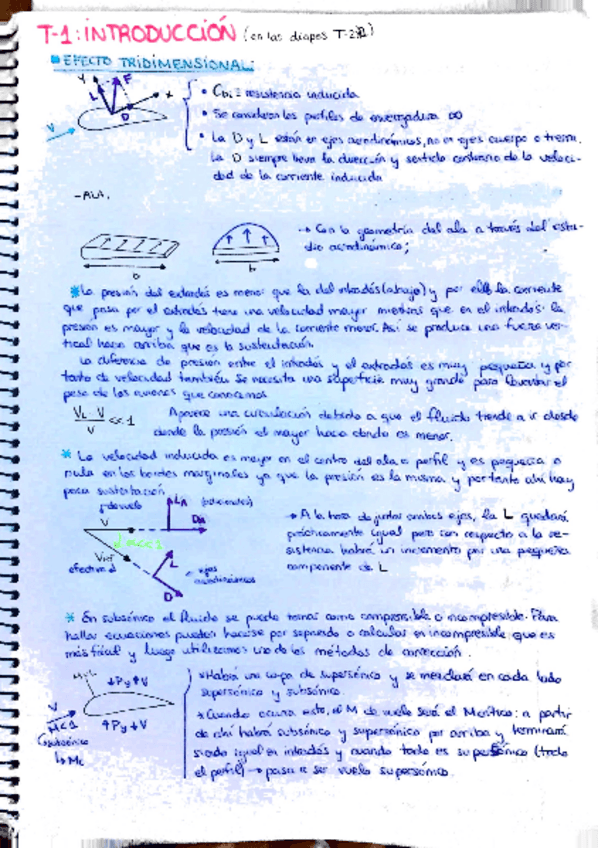 T-1: INTRODUCCIÓN (en las diapos T-2)
EFECTO TRIDIMENSIONAL:
Y F L D X V
• CDi = resistencia inducida
• Se consideran los perfiles de envergadura ∞
• La D y L están en ejes aerodinámicos, no en ejes cuerpo o tierra.
La D siempre lleva la dirección y sentido contrario de la veloci-
dad de la corriente inducida
- ALA.
→ Con la geometría del ala a través del estu-
dio aerodinámico;
b b
* La presión del extradós es menor que la del intradós (abajo) y por ello la corriente
que pasa por el extradós tiene una velocidad mayor mientras que en el intradós la
presión es mayor y la velocidad de la corriente menor. Así se produce una fuerza ver-
tical hacia arriba que es la sustentación.
La diferencia de presión entre el intradós y el extradós es muy pequeña y por
tanto de velocidad también. Se necesita una superficie muy grande para levantar el
peso de los aviones que conocemos.
VL - V / V << 1 Aparece una circulación debido a que el fluido tiende a ir desde
donde la presión es mayor hacia donde es menor.
* La velocidad inducida es mayor en el centro del ala o perfil y es pequeña o
nula en los bordes marginales ya que la presión es la misma y por tanto ahí hay
poca sustentación
V LA DA
α << 1
Vref
efectiva
L
D
ejes
aerodinámicos
→ A la hora de juntar ambos ejes, la L quedará
prácticamente igual pero con respecto a la re-
sistencia habrá un incremento por una pequeña
componente de L
* En subsónico el fluido se puede tomar como compresible o incompresible. Para
hallar ecuaciones pueden hacerse por separado o calcular en incompresible que es
más fácil y luego utilizamos uno de los métodos de corrección.
↓P y ↑V
V
M<1
subsónico
↳ Mc
↑P y ↓V
* Habrá una capa de supersónico y se mezclará en cada lado
supersónico y subsónico.
* Cuando ocurra esto, el M de vuelo será el M crítico: a partir
de ahí habrá subsónico y supersónico por arriba y terminará
siendo igual en intradós y cuando todo es supersónico (todo
el perfil) → pasa a ser vuelo supersónico.